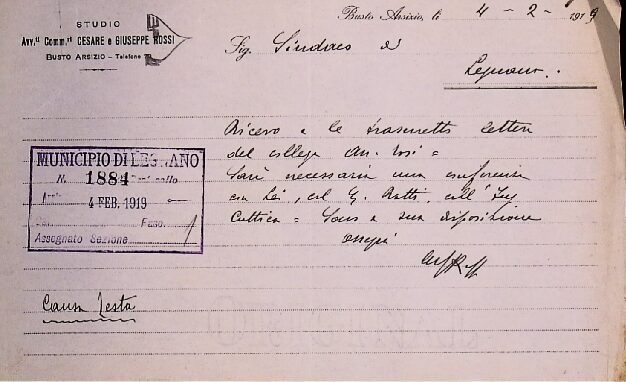 STUDIO
Avv.ti Comm.ri CESARE e GIUSEPPE ROSSI
BUSTO ARSIZIO - Telefono
Busto Arsizio, li 4-2-1919
Sig. Sindaco di
Legnano.
Ricevo e le trasmetto lettera
del collega avv.
Sarà necessaria una conferenza
con Lei, col Ratti, coll'Ing
Cuttica = Sono a sua disposizione
ossequi
MUNICIPIO DI LEGNANO
N. 1884 Protocollo
4 FEB. 1919
Fasc.
Assegnato Sezione
Causa Testa